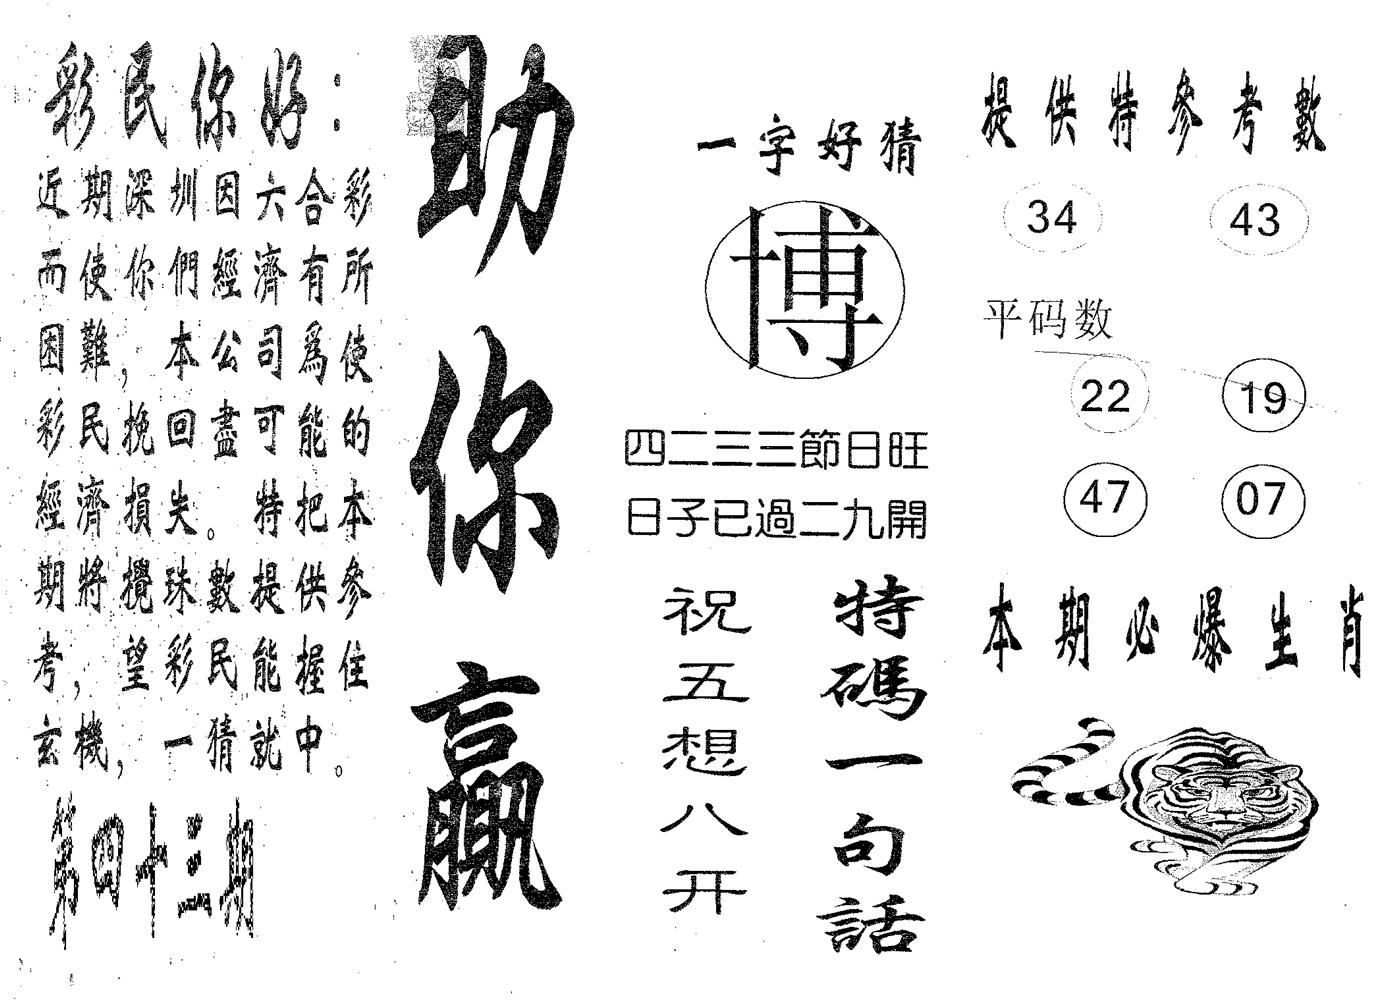 彩民你好：
近期深圳因六合彩
而使你們經濟有所
困難，本公司爲使
彩民挽回盡可能的
經濟損失。特把本
期將攪珠數提供參
考，望彩民能握住
玄機，一猜就中。
第四十三期
助你贏
一字好猜
博
四二三三節日旺
日子已過二九開
特碼一句話
祝五想八开
提供特參考數
34 43
平码数
22 19
47 07
本期必爆生肖